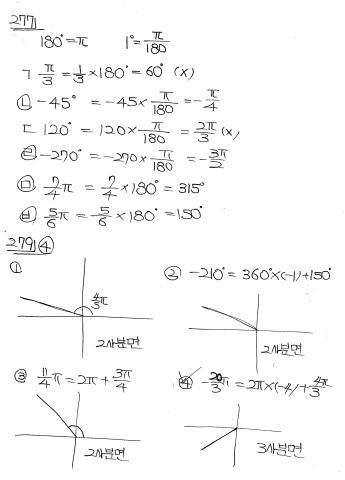 277)
180°=π 1°=π/180
ㄱ π/3 = 1/3 × 180° = 60° (x)
ㄴ -45° = -45 × π/180 = -π/4
ㄷ 120° = 120 × π/180 = 2π/3 (x)
ㄹ -270° = -270 × π/180 = -3π/2
ㅁ 7/4 π = 7/4 × 180° = 315°
ㅂ 5/6 π = 5/6 × 180° = 150°
279) ④
① ② -210° = 360° × (-1) + 150°
π
3
2사분면 2사분면
③ 11/4 π = 2π + 3π/4 ④ -20/3 π = 2π × (-4) + 4π/3
2사분면 3사분면